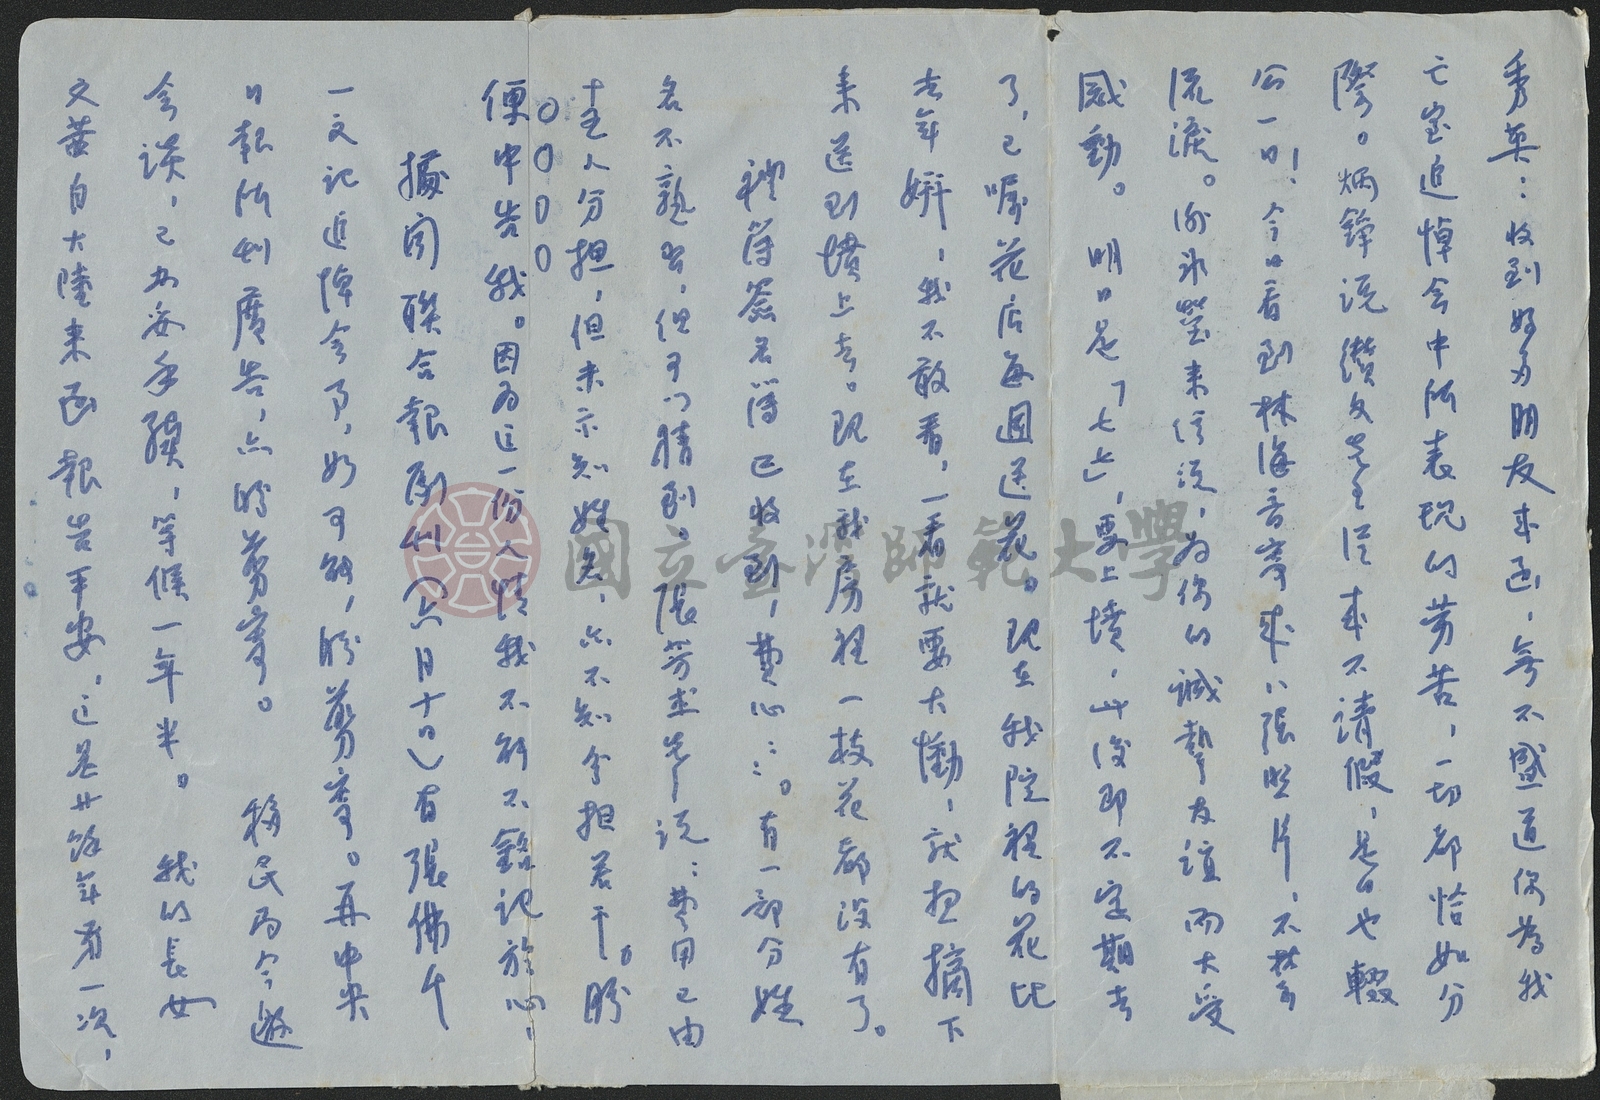 秀英：收到好多朋友來函，無不盛道你為我
亡室追悼會中所表現的勞苦，一切都恰如分
際。炳鋒說續文先生從來不請假，是日也輟
公一日！今日看到林海音寄來八張照片，不禁
流淚。謝冰瑩來信說，為你的誠摯友誼而大受
感動。明日是「七七」，要上墳，此後即不定期去
了，已囑花店每週送花。現在我院裡的花比
去年姸，我不敢看，一看就要大慟，就想摘下
來送到墳上去。現在我房裡一枝花都沒有了。
禮簿簽名簿已收到，費心……。有一部分姓
名不熟習，但可以猜到。張芳杰先生說：費用已由
十五人分担，但未示知姓名，亦不知分担若干。盼
便中告我。因為這一份人情我不能不銘記於心，
〇〇〇〇〇
據聞聯合報副刊（六月十日）有張佛千
一文記追悼會事，如可能，盼剪寄。再中央
日報所刊廣告，亦盼剪寄。 移民局今邀
會談，已办妥手續，等候一年半。 我的長女
文茜自大陸來函報告平安，這是廿餘年第一次，
國立臺灣師範大學